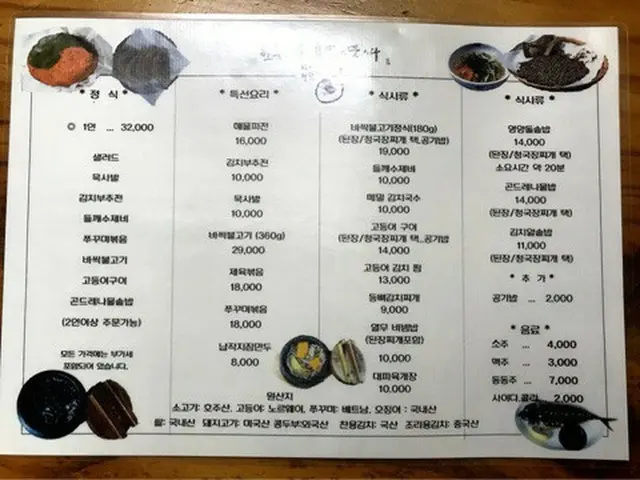 * 정 식 *
◎ 1인 ... 32,000
샐러드
묵사발
김치부추전
들깨수제비
쭈꾸미볶음
바싹불고기
고등어구이
곤드레나물솥밥
(2인이상 주문가능)
모든 가격에는 부가세
포함되어 있습니다.
* 특선요리 *
해물파전
16,000
김치부추전
10,000
묵사발
10,000
바싹불고기 (360g)
29,000
제육볶음
18,000
쭈꾸미볶음
18,000
납작지짐만두
8,000
* 식사류 *
바싹불고기정식(180g)
(된장/청국장찌개 택_공기밥)
19,000
들깨수제비
10,000
메밀 김치국수
10,000
고등어 구이
(된장/청국장찌개 택_공기밥)
14,000
고등어 김치 찜
13,000
등뼈김치찌개
9,000
열무 비빔밥
(된장찌개포함)
10,000
대파육개장
10,000
* 식사류 *
영양돌솥밥
14,000
(된장/청국장찌개 택)
소요시간 약 20분
곤드레나물밥
14,000
(된장/청국장찌개 택)
김치알솥밥
11,000
(된장/청국장찌개 택)
* 추 가 *
공기밥 ... 2,000
* 음료 *
소주 ... 4,000
맥주 ... 3,000
동동주 ... 7,000
사이다.콜라 2,000
원산지
소고기: 호주산. 고등어: 노르웨이, 쭈꾸미: 베트남. 오징어 : 국내산
쌀: 국내산 돼지고기: 미국산 콩두부:외국산 찬용김치: 국산 조리용김치: 중국산